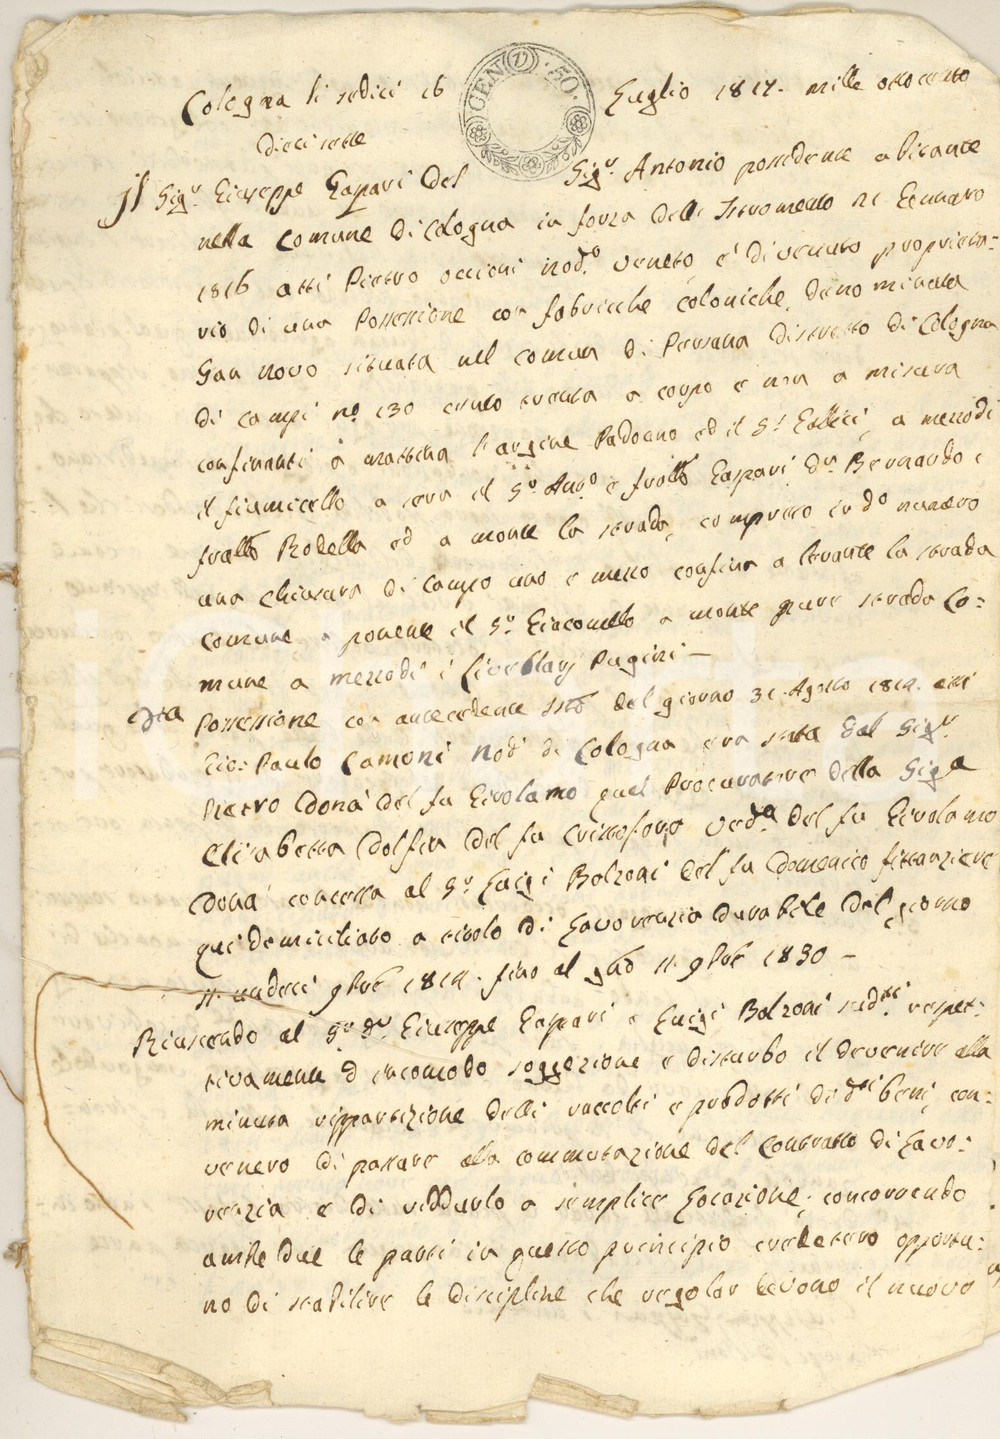 Cologna li sedici 16 Luglio 1817. mille ottocento
diecisette
CEN. 50.
Il Sigr. Giuseppe Gaspari del Sigr. Antonio possidente abitante
nella Comune di Cologna in forza dell' Istromento 21 Gennaro
1816 atti Pietro Occioni Nodo. Veneto, è divenuto proprieta=
rio di una Possessione con fabbriche coloniche, denominata
Gan novo situata nel comun di Pressana Distretto di Cologna
di campi no. 130 cento trenta a corpo e non a misura
confinanti a mattina l'argine Padoano ed il Sr. a mezzodì
il fiumicello a sera il Sr. Anto. e fratlli Gaspari, Dn. Bernardo e
fratlli Rodella ed a monte la strada, compreso in do. numero
una chiusura di campo uno e mezzo confina a levante la strada
comune a ponente il Sr. Giacomello a monte pure strada Co=
mune a mezzodì i Pugini —
Dta Possessione con antecedente Isto del giorno 31. Agosto 1814. atti
Gio: Paulo Camoni Nodo di Cologna era stata dal Sigr.
Pietro Donà del fu Girolamo qual Procuratore della Siga
Elisabetta Dolfin del fu Cristoforo Veda. del fu Girolamo
Donà concessa al Sr. Luigi Bolzoni del fu Domenico fittanziere
qui domiciliato a titolo di Lavorenzia durabile dal giorno
11. undeci 9bre 1814. fino al gno 11. 9bre 1830 —
Riuscendo al Sr. Dn. Giuseppe Gaspari e Luigi Bolzoni sudtti. respet=
tivamente d'incomodo soggezione e disturbo il devenire alla
minuta ripartizione delli raccolti e prodotti di dtti beni, con=
vennero di passare alla commutazione del Contratto di Lavo=
renzia e di ridurlo a semplice Locazione; concorrendo
ambedue le parti in questo principio credetero opportu=
no di stabilire le discipline che regolar devono il nuovo